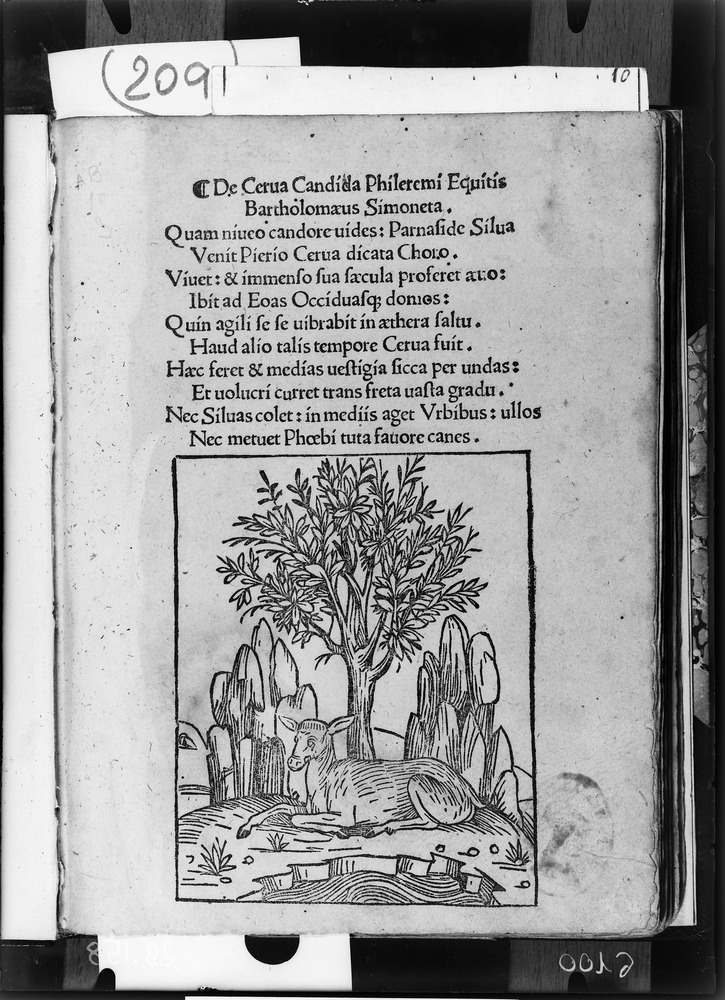 (209)
10
☾ De Cerua Candida Phileremi Equitis
Bartholomæus Simoneta.
Quam niueo candore uides: Parnaside Silua
Venit Pierio Cerua dicata Choro.
Viuet: & immenso sua sæcula proferet æuo:
Ibit ad Eoas Occiduasq; domos:
Quin agili se se uibrabit in æthera saltu.
Haud alio talis tempore Cerua fuit.
Hæc feret & medias uestigia sicca per undas:
Et uolucri curret trans freta uasta gradu.
Nec Siluas colet: in mediis aget Vrbibus: ullos
Nec metuet Phœbi tuta fauore canes.